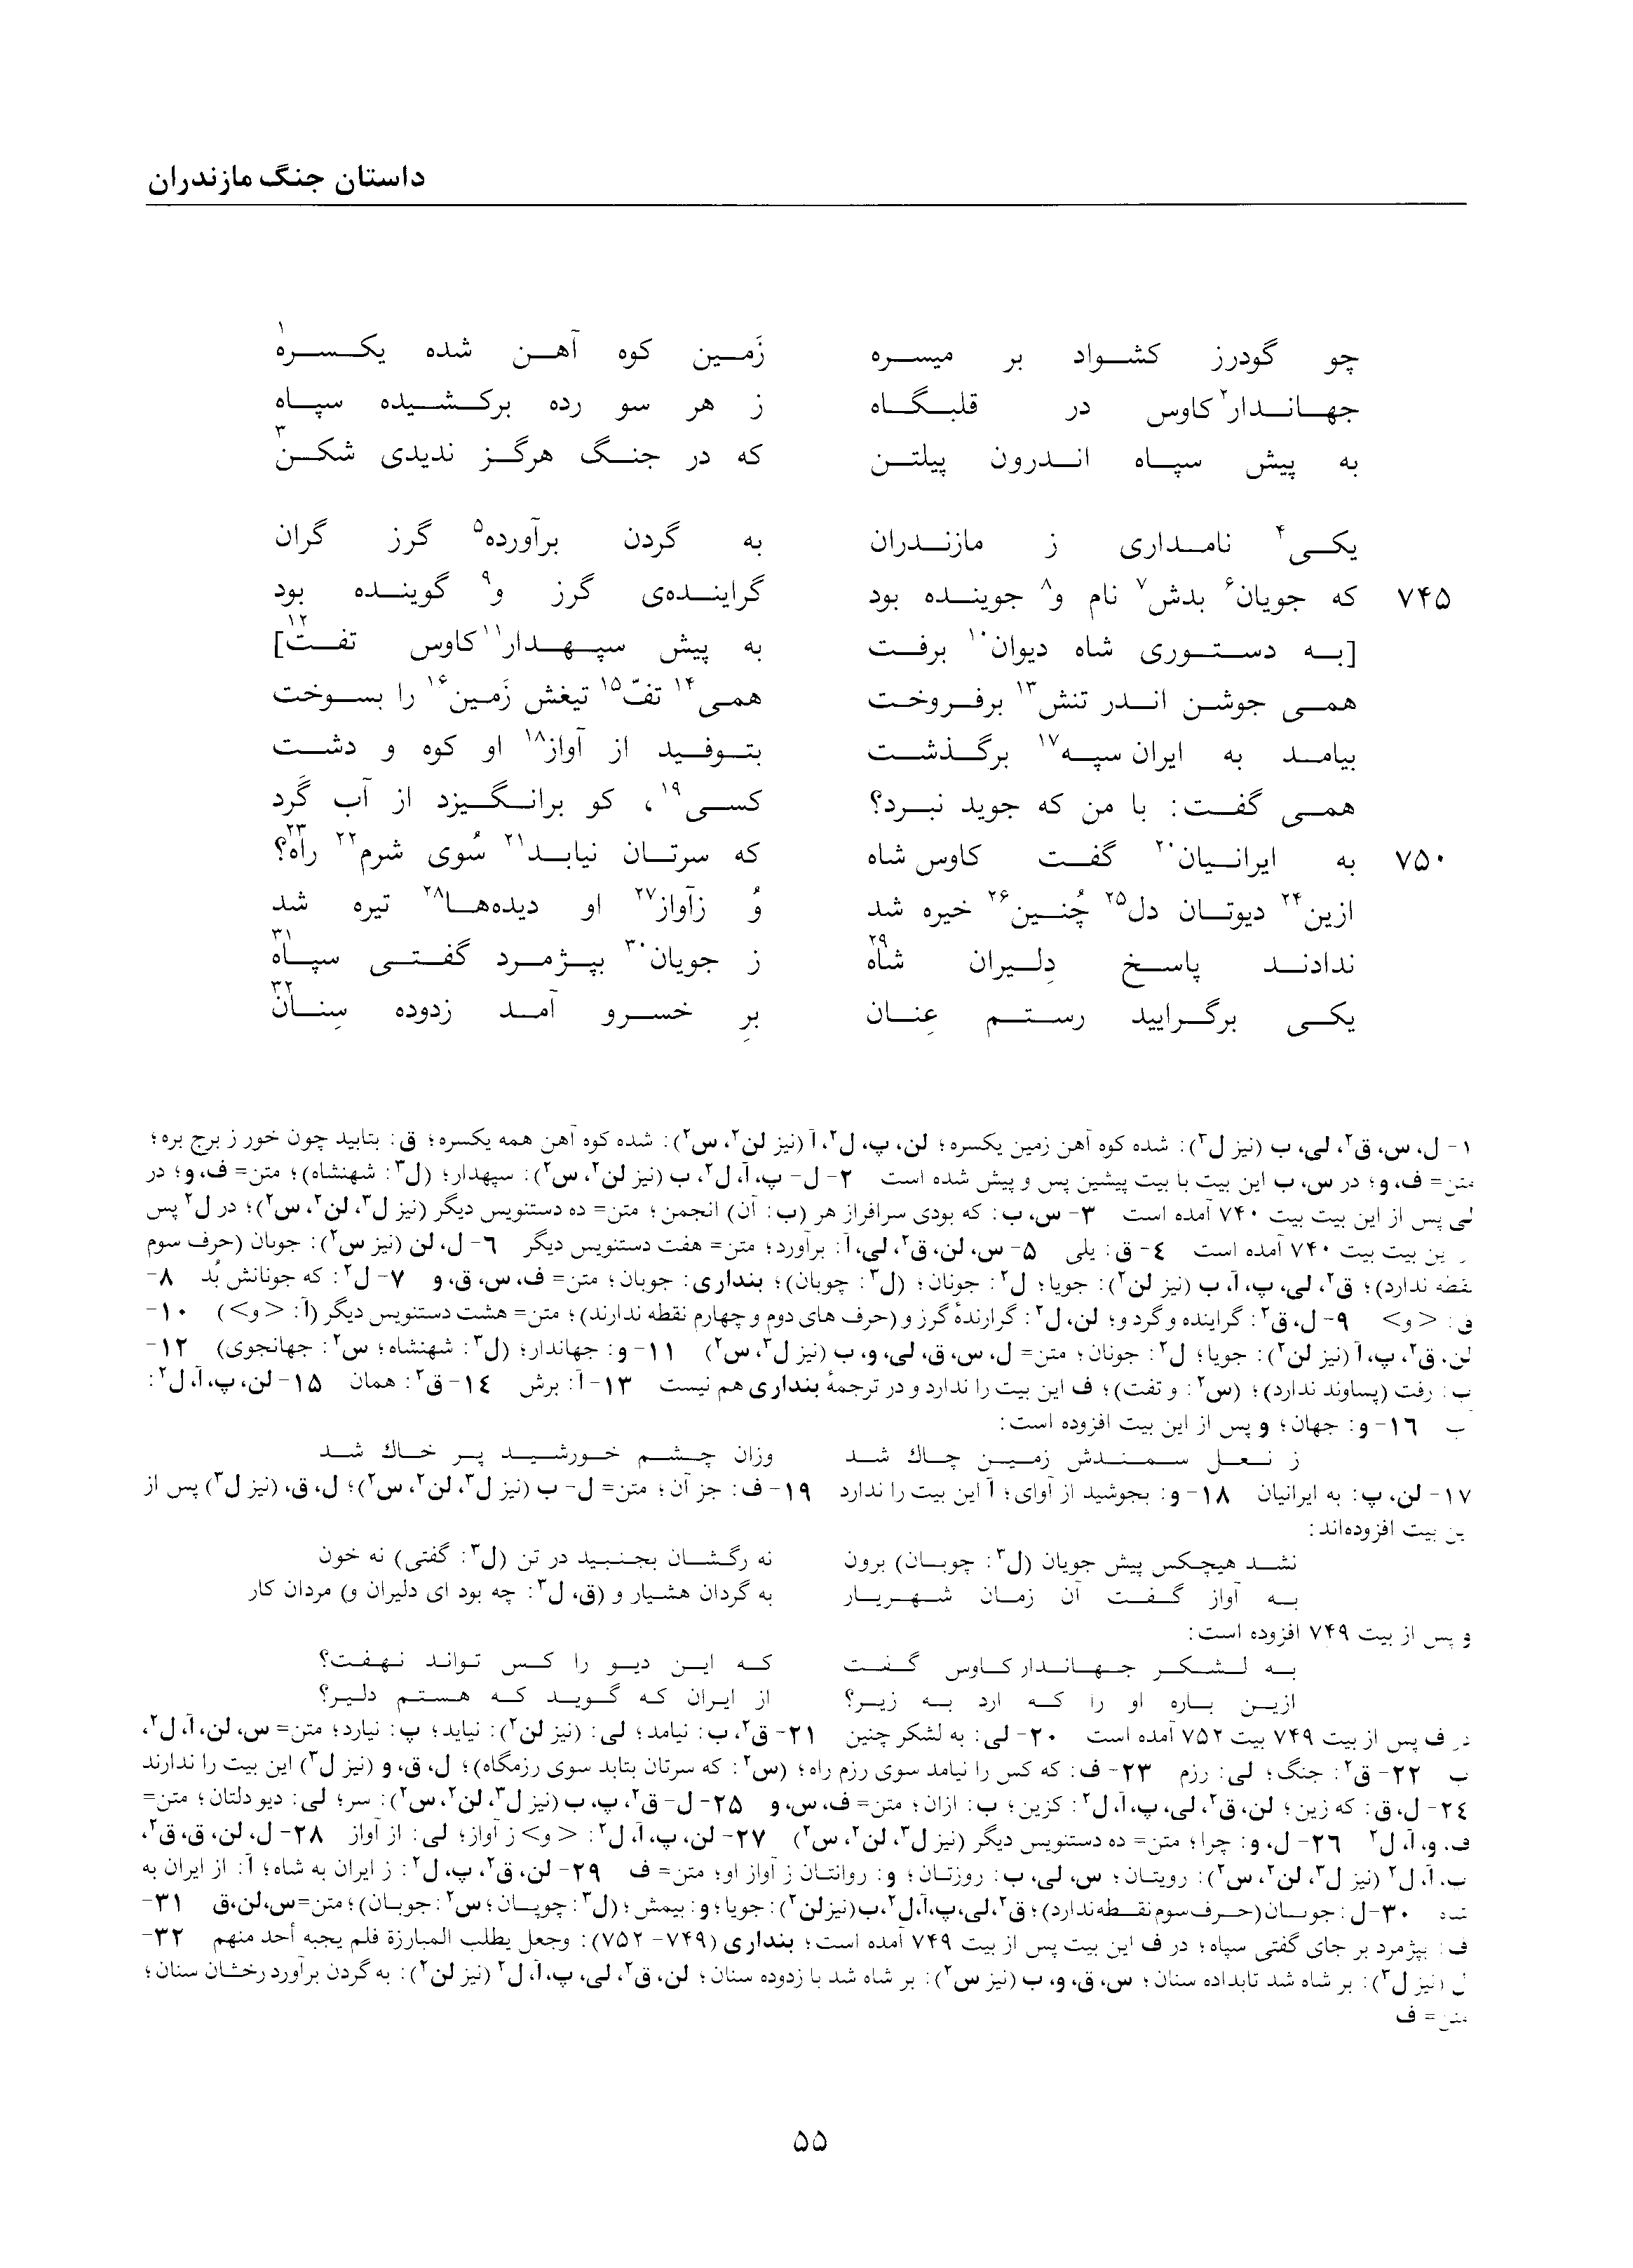 داستان جنگ مازندران
چو گودرز کشواد بر میسره زَمین کوه آهن شده یکسره۱
جهاندار۲ کاوس در قلبگاه ز هر سو رده برکشیده سپاه
به پیش سپاه اندرون پیلتن که در جنگ هرگز ندیدی شکن۳
یکی۴ نامداری ز مازندران به گردن برآورده۵ گرز گران
۷۴۵ که جویان۶ بدش۷ نام و۸ جوینده بود گراینده‌ی گرز و۹ گوینده بود
[به دستوری شاه دیوان۱۰ برفت به پیش سپهدار۱۱ کاوس تفت۱۲]
همی جوشن اندر تنش۱۳ برفروخت همی۱۴ تفّ۱۵ تیغش زَمین۱۶ را بسوخت
بیامد به ایران سپه۱۷ برگذشت بتوفید از آواز۱۸ او کوه و دشت
همی گفت: با من که جوید نبرد؟ کسی۱۹، کو برانگیزد از آب گَرد
۷۵۰ به ایرانیان۲۰ گفت کاوس شاه که سرتان نیابد۲۱ سُوی شرم۲۲ راه؟۲۳
ازین۲۴ دیوتان دل۲۵ چُنین۲۶ خیره شد وُ زآواز۲۷ او دیده‌ها۲۸ تیره شد
ندادند پاسخ دِلیران شاه۲۹ ز جویان۳۰ بپژمرد گفتی سپاه۳۱
یکی برگرایید رستم عِنان برِ خسرو آمد زدوده سِنان۳۲
۱- ل، س، ق۲، لی، ب (نیز ل۳): شده کوه آهن زمین یکسره؛ لن، پ، ل۲، آ (نیز لن۲، س۲): شده کوه آهن همه یکسره؛ ق: بتابید چون خور ز برج بره؛
متن= ف، و؛ در س، ب این بیت با بیت پیشین پس و پیش شده است ۲- ل- پ، آ، ل۲، ب (نیز لن۲، س۲): سپهدار؛ (ل۳: شهنشاه)؛ متن= ف، و؛ در
لی پس از این بیت بیت ۷۴۰ آمده است ۳- س، ب: که بودی سرافراز هر (ب: آن) انجمن؛ متن= ده دستنویس دیگر (نیز ل۳، لن۲، س۲)؛ در ل۲ پس
ین بیت بیت ۷۴۰ آمده است ۴- ق: یلی ۵- س، لن، ق۲، لی، آ: برآورد؛ متن= هفت دستنویس دیگر ۶- ل، لن (نیز س۲): جوبان (حرف سوم
نقطه ندارد)؛ ق۲، لی، پ، آ، ب (نیز لن۲): جویا؛ ل۲: جونان؛ (ل۳: چوبان)؛ بنداری: جوبان؛ متن= ف، س، ق، و ۷- ل۲: که جونانش بُد ۸-
ق: <و> ۹- ل، ق۲: گراینده و گرد و؛ لن، ل۲: گرازندهٔ گرز و (حرف های دوم و چهارم نقطه ندارند)؛ متن= هشت دستنویس دیگر (آ: <و>) ۱۰-
لن، ق۲، پ، آ (نیز لن۲): جویا؛ ل۲: جونان؛ متن= ل، س، ق، لی، و، ب (نیز ل۳، س۲) ۱۱- و: جهاندار؛ (ل۳: شهنشاه؛ س۲: جهانجوی) ۱۲-
ب: رفت (پساوند ندارد)؛ (س۲: و تفت)؛ ف این بیت را ندارد و در ترجمهٔ بنداری هم نیست ۱۳- آ: برش ۱۴- ق۲: همان ۱۵- لن، پ، آ، ل۲:
۱۶- و: جهان؛ و پس از این بیت افزوده است:
ز نعل سمندش زمین چاك شد وزان چشم خورشید پر خاك شد
۱۷- لن، پ: به ایرانیان ۱۸- و: بجوشید از آوای؛ آ این بیت را ندارد ۱۹- ف: جز آن؛ متن= ل- ب (نیز ل۳، لن۲، س۲)؛ ل، ق، (نیز ل۳) پس از
ین بیت افزوده‌اند:
نشد هیچکس پیش جویان (ل۳: چوبان) برون نه رگشان بجنبید در تن (ل۳: گفتی) نه خون
به آواز گفت آن زمان شهریار به گردان هشیار و (ق، ل۳: چه بود ای دلیران و) مردان کار
و پس از بیت ۷۴۹ افزوده است:
به لشکر جهاندار کاوس گفت که این دیو را کس تواند نهفت؟
ازین باره او را که ارد به زیر؟ از ایران که گوید که هستم دلیر؟
در ف پس از بیت ۷۴۹ بیت ۷۵۲ آمده است ۲۰- لی: به لشکر چنین ۲۱- ق۲، ب: نیامد؛ لی: (نیز لن۲): نیاید؛ پ: نیارد؛ متن= س، لن، آ، ل۲،
ب ۲۲- ق۲: جنگ؛ لی: رزم ۲۳- ف: که کس را نیامد سوی رزم راه؛ (س۲: که سرتان بتابد سوی رزمگاه)؛ ل، ق، و (نیز ل۳) این بیت را ندارند
۲۴- ل، ق: که زین؛ لن، ق۲، لی، پ، آ، ل۲: کزین؛ ب: ازان؛ متن= ف، س، و ۲۵- ل- ق۲، پ، ب (نیز ل۳، لن۲، س۲): سر؛ لی: دیو دلتان؛ متن=
ف، و، آ، ل۲ ۲۶- ل، و: چرا؛ متن= ده دستنویس دیگر (نیز ل۳، لن۲، س۲) ۲۷- لن، پ، آ، ل۲: <و> ز آواز؛ لی: از آواز ۲۸- ل، لن، ق، ق۲،
پ، آ، ل۲ (نیز ل۳، لن۲، س۲): رویتان؛ س، لی، ب: روزتان؛ و: روانتان ز آواز او؛ متن= ف ۲۹- لن، ق۲، پ، ل۲: ز ایران به شاه؛ آ: از ایران به
شاه ۳۰- ل: جوبان (حرف سوم نقطه ندارد)؛ ق۲، لی، پ، آ، ل۲، ب (نیز لن۲): جویا؛ و: بیمش؛ (ل۳: چوپان؛ س۲: جوبان)؛ متن= س، لن، ق ۳۱-
ف: بپژمرد بر جای گفتی سپاه؛ در ف این بیت پس از بیت ۷۴۹ آمده است؛ بنداری (۷۴۹- ۷۵۲): وجعل یطلب المبارزة فلم یجبه أحد منهم ۳۲-
ل (نیز ل۳): بر شاه شد تابداده سنان؛ س، ق، و، ب (نیز س۲): بر شاه شد با زدوده سنان؛ لن، ق۲، لی، پ، آ، ل۲ (نیز لن۲): به گردن برآورد رخشان سنان؛
متن= ف
۵۵